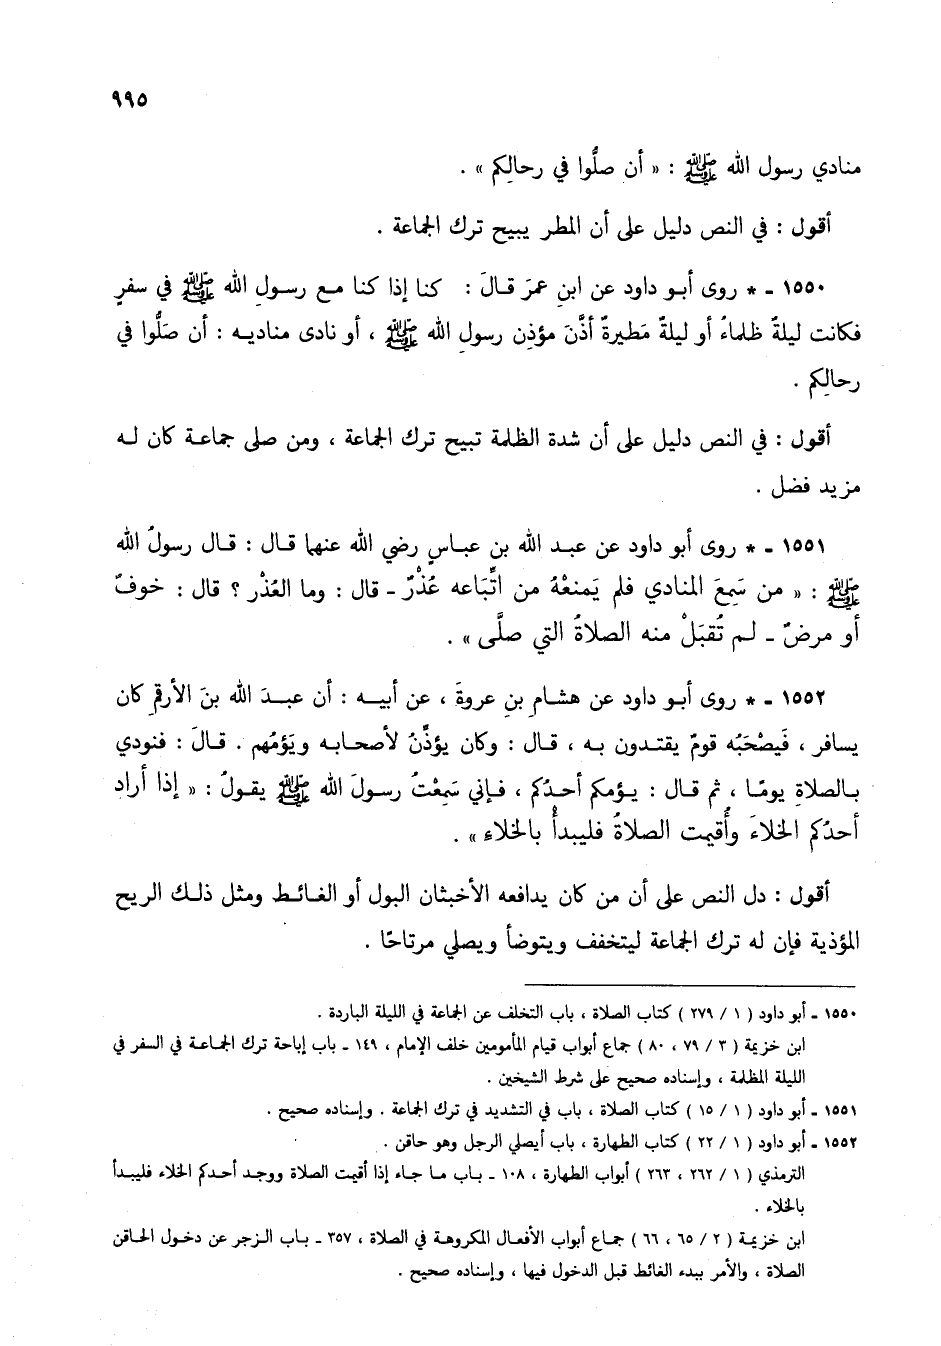 ٩٩٥
منادي رسول الله ﷺ : « أن صلُّوا في رحالِكم » .
أقول : في النص دليل على أن المطر يبيح ترك الجماعة .
١٥٥٠ ـ * روى أبو داود عن ابنِ عمرَ قالَ : كنا إذا كنا مع رسولِ الله ﷺ في سفرٍ
فكانت ليلةٌ ظلماءُ أو ليلةٌ مَطيرةٌ أذَّنَ مؤذِن رسولِ الله ﷺ ، أو نادى مناديه : أن صَلُّوا في
رحالِكم .
أقول : في النص دليل على أن شدة الظلمة تبيح ترك الجماعة ، ومن صلى جماعة كان له
مزيد فضل .
١٥٥١ ـ * روى أبو داود عن عبد الله بن عباسٍ رضي الله عنهما قال : قال رسولُ الله
ﷺ : « من سَمِعَ المنادي فلم يَمنعْهُ من اتِّبَاعه عُذْرٌ ـ قال : وما العُذْر ؟ قال : خوفٌ
أو مرضٌ ـ لم تُقبَلْ منه الصلاةُ التي صلَّى » .
١٥٥٢ ـ * روى أبو داود عن هشامِ بنِ عروةَ ، عن أبيه : أن عبدَ الله بنَ الأرقمِ كان
يسافر ، فَيصْحَبُه قومٌ يقتدون به ، قال : وكان يؤذِّنُ لأصحابه ويَؤمُهم . قالَ : فنودي
بالصلاةِ يومًا ، ثم قال : يؤمكم أحدُكم ، فإني سَمِعْتُ رسولَ الله ﷺ يقولُ : « إذا أراد
أحدُكم الخلاءَ وأُقيمت الصلاةُ فليبدأْ بالخلاءِ » .
أقول : دل النص على أن من كان يدافعه الأخبثان البول أو الغائط ومثل ذلك الريح
المؤذية فإن له ترك الجماعة ليتخفف ويتوضأ ويصلي مرتاحًا .
١٥٥٠ ـ أبو داود ( ١ / ٢٧٩ ) كتاب الصلاة ، باب التخلف عن الجماعة في الليلة الباردة .
ابن خزيمة ( ٣ / ٧٩ ، ٨٠ ) جماع أبواب قيام المأمومين خلف الإمام ، ١٤٩ ـ باب إباحة ترك الجماعة في السفر في
الليلة المظلمة ، وإسناده صحيح على شرط الشيخين .
١٥٥١ ـ أبو داود ( ١ / ١٥ ) كتاب الصلاة ، باب في التشديد في ترك الجماعة . وإسناده صحيح .
١٥٥٢ ـ أبو داود ( ١ / ٢٢ ) كتاب الطهارة ، باب أيصلي الرجل وهو حاقن .
الترمذي ( ١ / ٢٦٢ ، ٢٦٣ ) أبواب الطهارة ، ١٠٨ ـ باب ما جاء إذا أقيمت الصلاة ووجد أحدكم الخلاء فليبدأ
بالخلاء .
ابن خزيمة ( ٢ / ٦٥ ، ٦٦ ) جماع أبواب الأفعال المكروهة في الصلاة ، ٣٥٧ ـ باب الزجر عن دخول الحاقن
الصلاة ، والأمر ببدء الغائط قبل الدخول فيها ، وإسناده صحيح .